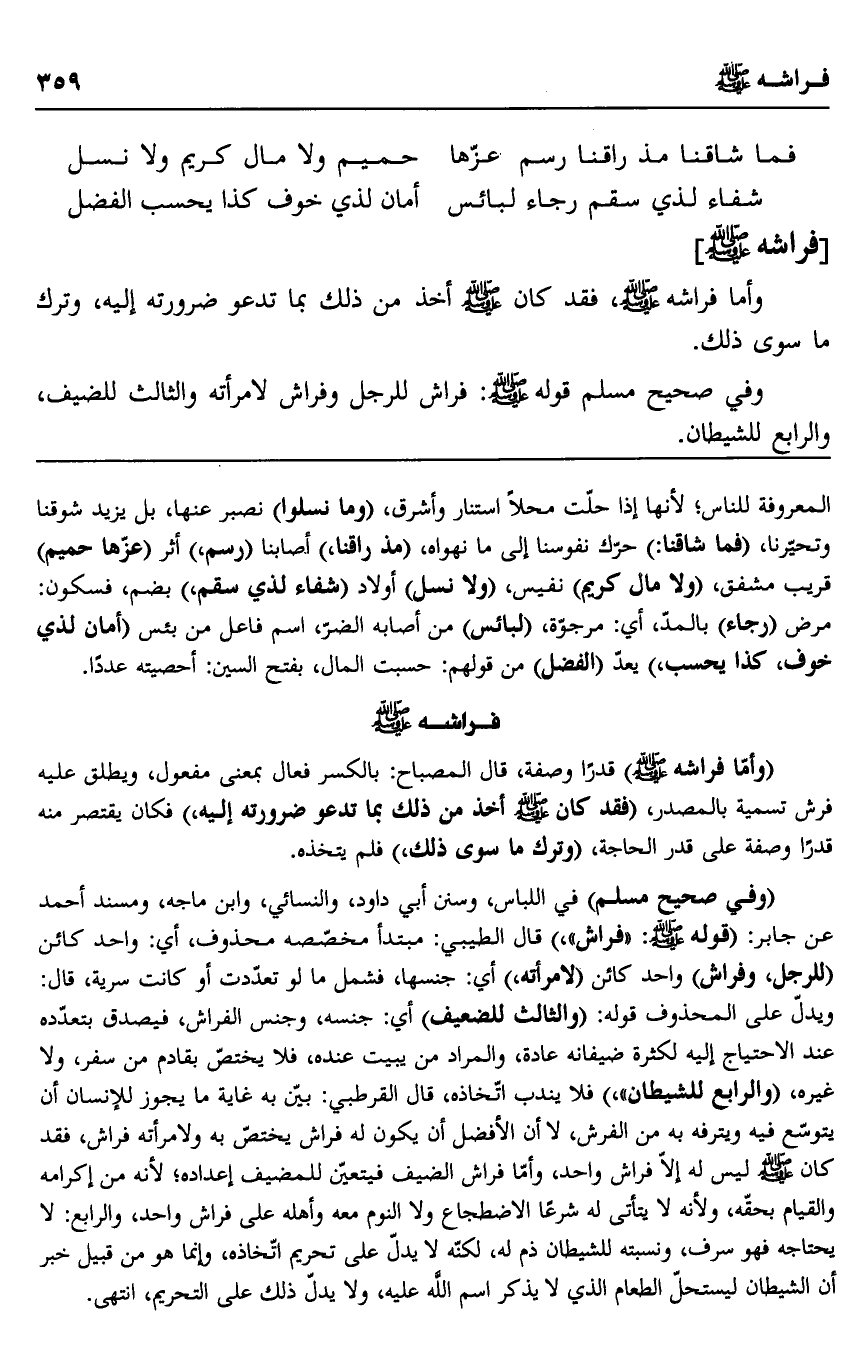 فراشه ﷺ ٣٥٩
فما شاقنا مذ راقنا رسم عزّها حميم ولا مال كريم ولا نسل
شفاء لذي سقم رجاء لبائس أمان لذي خوف كذا يحسب الفضل
[فراشه ﷺ]
وأما فراشه ﷺ، فقد كان ﷺ أخذ من ذلك بما تدعو ضرورته إليه، وترك
ما سوى ذلك.
وفي صحيح مسلم قوله ﷺ: فراش للرجل وفراش لامرأته والثالث للضيف،
والرابع للشيطان.
المعروفة للناس؛ لأنها إذا حلّت محلاً استنار وأشرق، (وما نسلوا) نصبر عنها، بل يزيد شوقنا
وتحيّرنا، (فما شاقنا:) حرّك نفوسنا إلى ما نهواه، (مذ راقنا،) أصابنا (رسم،) أثر (عزّها حميم)
قريب مشفق، (ولا مال كريم) نفيس، (ولا نسل) أولاد (شفاء لذي سقم،) بضم، فسكون:
مرض (رجاء) بالمدّ، أي: مرجوّة، (لبائس) من أصابه الضرّ، اسم فاعل من بئس (أمان لذي
خوف، كذا يحسب،) يعدّ (الفضل) من قولهم: حسبت المال، بفتح السين: أحصيته عددًا.
فراشه ﷺ
(وأمّا فراشه ﷺ) قدرًا وصفة، قال المصباح: بالكسر فعال بمعنى مفعول، ويطلق عليه
فرش تسمية بالمصدر، (فقد كان ﷺ أخذ من ذلك بما تدعو ضرورته إليه،) فكان يقتصر منه
قدرًا وصفة على قدر الحاجة، (وترك ما سوى ذلك،) فلم يتخذه.
(وفي صحيح مسلم) في اللباس، وسنن أبي داود، والنسائي، وابن ماجه، ومسند أحمد
عن جابر: (قوله ﷺ: «فراش»،) قال الطيبي: مبتدأ مخصّصه محذوف، أي: واحد كائن
(للرجل، وفراش) واحد كائن (لامرأته،) أي: جنسها، فشمل ما لو تعدّدت أو كانت سرية، قال:
ويدلّ على المحذوف قوله: (والثالث للضعيف) أي: جنسه، وجنس الفراش، فيصدق بتعدّده
عند الاحتياج إليه لكثرة ضيفانه عادة، والمراد من يبيت عنده، فلا يختصّ بقادم من سفر، ولا
غيره، (والرابع للشيطان»،) فلا يندب اتّخاذه، قال القرطبي: بيّن به غاية ما يجوز للإنسان أن
يتوسّع فيه ويترفه به من الفرش، لا أن الأفضل أن يكون له فراش يختصّ به ولامرأته فراش، فقد
كان ﷺ ليس له إلاّ فراش واحد، وأمّا فراش الضيف فيتعيّن للمضيف إعداده؛ لأنه من إكرامه
والقيام بحقّه، ولأنه لا يتأتى له شرعًا الاضطجاع ولا النوم معه وأهله على فراش واحد، والرابع: لا
يحتاجه فهو سرف، ونسبته للشيطان ذم له، لكنّه لا يدلّ على تحريم اتّخاذه، وإنما هو من قبيل خبر
أن الشيطان ليستحلّ الطعام الذي لا يذكر اسم اللَّه عليه، ولا يدلّ ذلك على التحريم، انتهى.